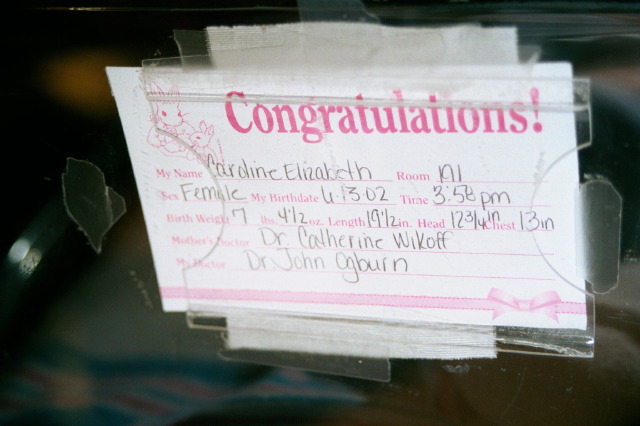 Congratulations!
My Name Caroline Elizabeth Room 191
Sex Female My Birthdate 6·13·02 Time 3:58 pm
Birth Weight 7 lbs. 4 1/2 oz. Length 19 1/2 in. Head 12 3/4 in Chest 13 in
Mother's Doctor Dr. Catherine Wikoff
My Doctor Dr. John Ogburn